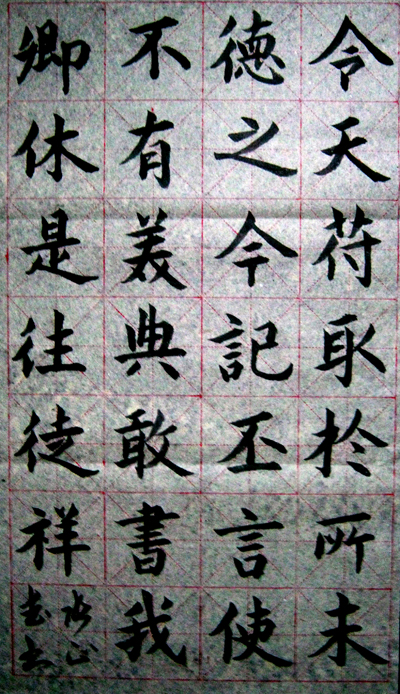 令天苻取於所未
德之今記丕言使
不有美典敢書我
卿休是往徒祥